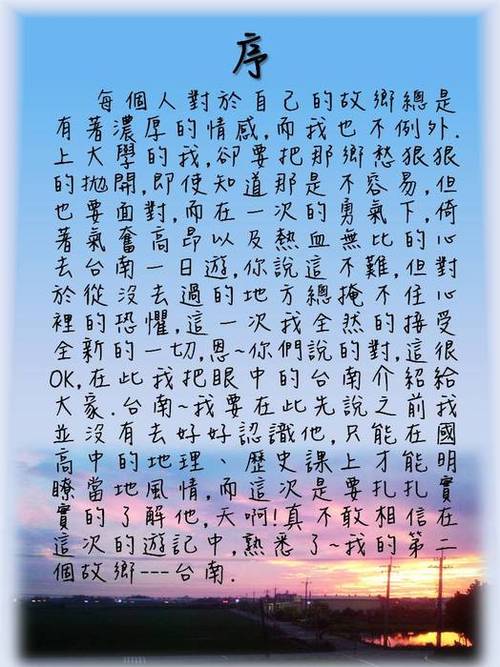 序
每個人對於自己的故鄉總是
有著濃厚的情感,而我也不例外.
上大學的我,卻要把那鄉愁狠狠
的拋開,即使知道那是不容易,但
也要面對,而在一次的勇氣下,倚
著氣奮高昂以及熱血無比的心
去台南一日遊,你說這不難,但對
於從沒去過的地方總掩不住心
裡的恐懼,這一次我全然的接受
全新的一切,恩~你們說的對,這很
OK,在此我把眼中的台南介紹給
大家.台南~我要在此先說之前我
並沒有去好好認識他,只能在國
高中的地理、歷史課上才能明
瞭當地風情,而這次是要扎扎實
實的了解他,天啊!真不敢相信在
這次的遊記中,熟悉了~我的第二
個故鄉---台南.